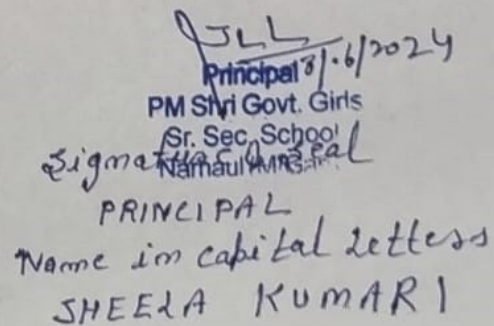 3/.6/2024
Principal
PM Shri Govt. Girls
Sr. Sec. School
Signature & Seal
Narnaul
PRINCIPAL
Name in capital letters
SHEELA KUMARI